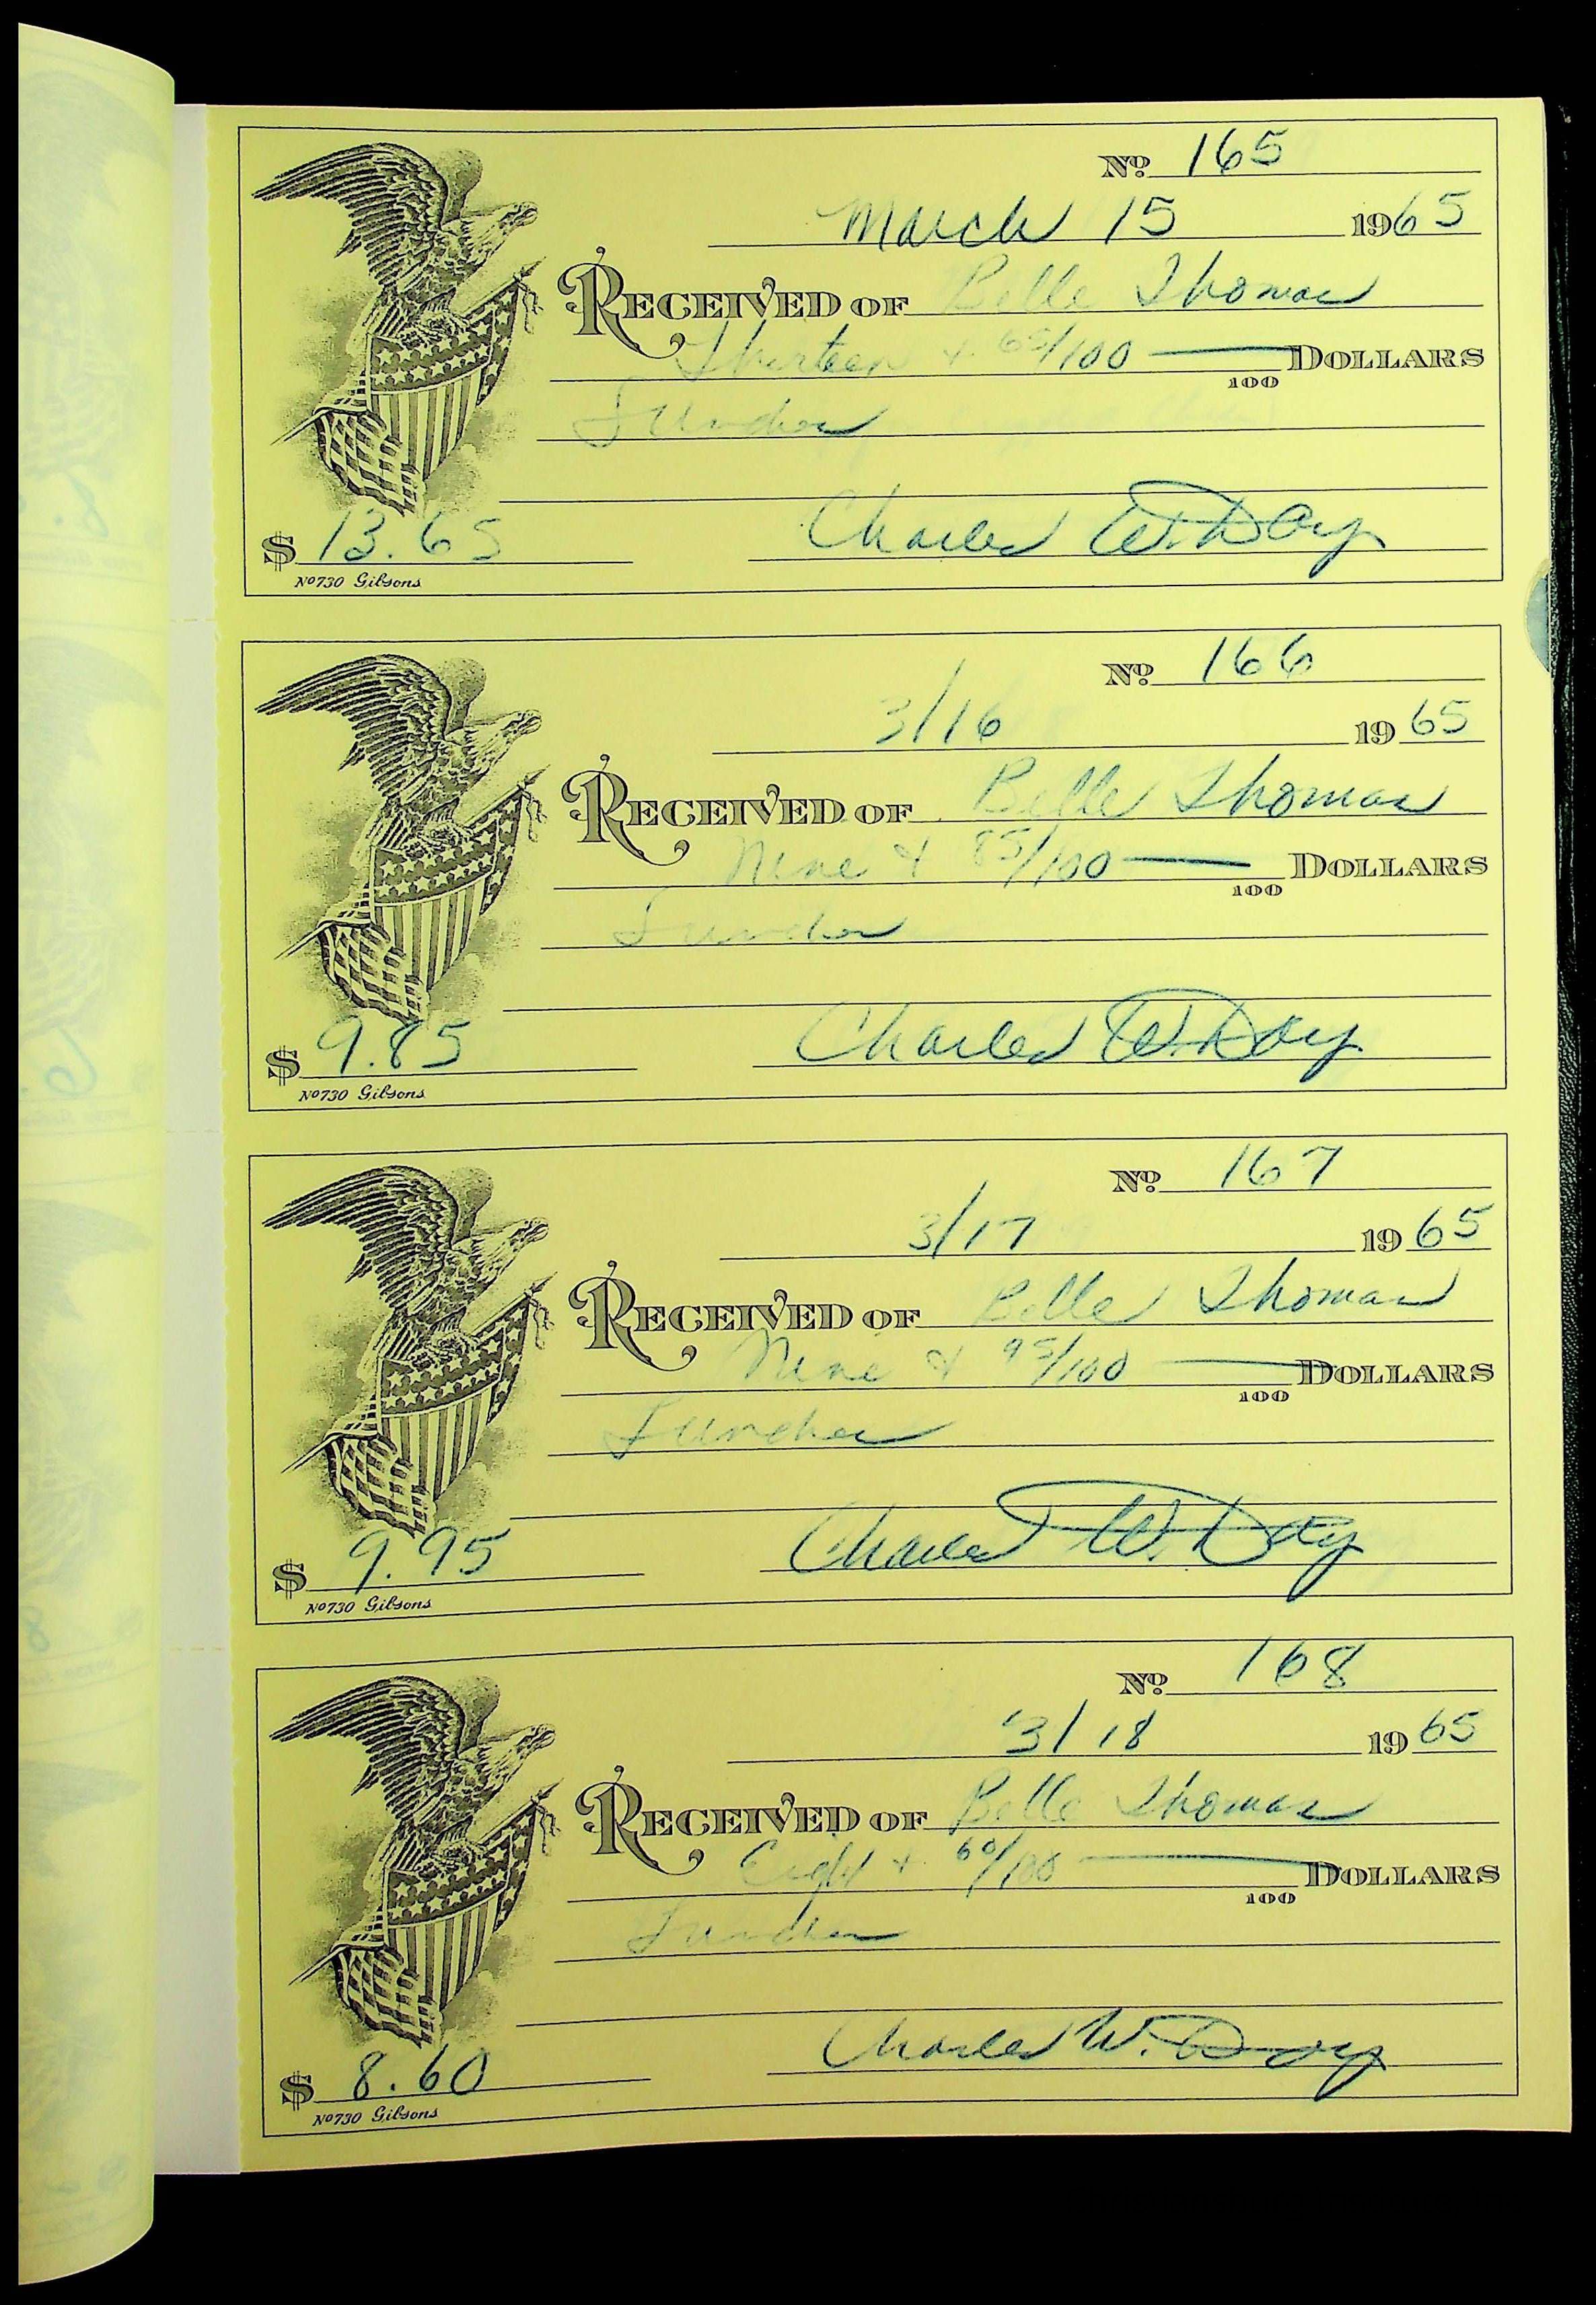 No. 165
March 15 1965
RECEIVED OF Belle Thomas
Thirteen & 65/100 DOLLARS
100
Lunches
Charles W. Day
$ 13.65
No 730 Gibsons
No. 166
3/16 1965
RECEIVED OF Belle Thomas
Nine & 85/100 DOLLARS
100
Lunches
Charles W. Day
$ 9.85
No 730 Gibsons
No. 167
3/17 1965
RECEIVED OF Belle Thomas
Nine & 95/100 DOLLARS
100
Lunches
Charles W. Day
$ 9.95
No 730 Gibsons
No. 168
3/18 1965
RECEIVED OF Belle Thomas
Eight & 60/100 DOLLARS
100
Lunches
Charles W. Day
$ 8.60
No 730 Gibsons